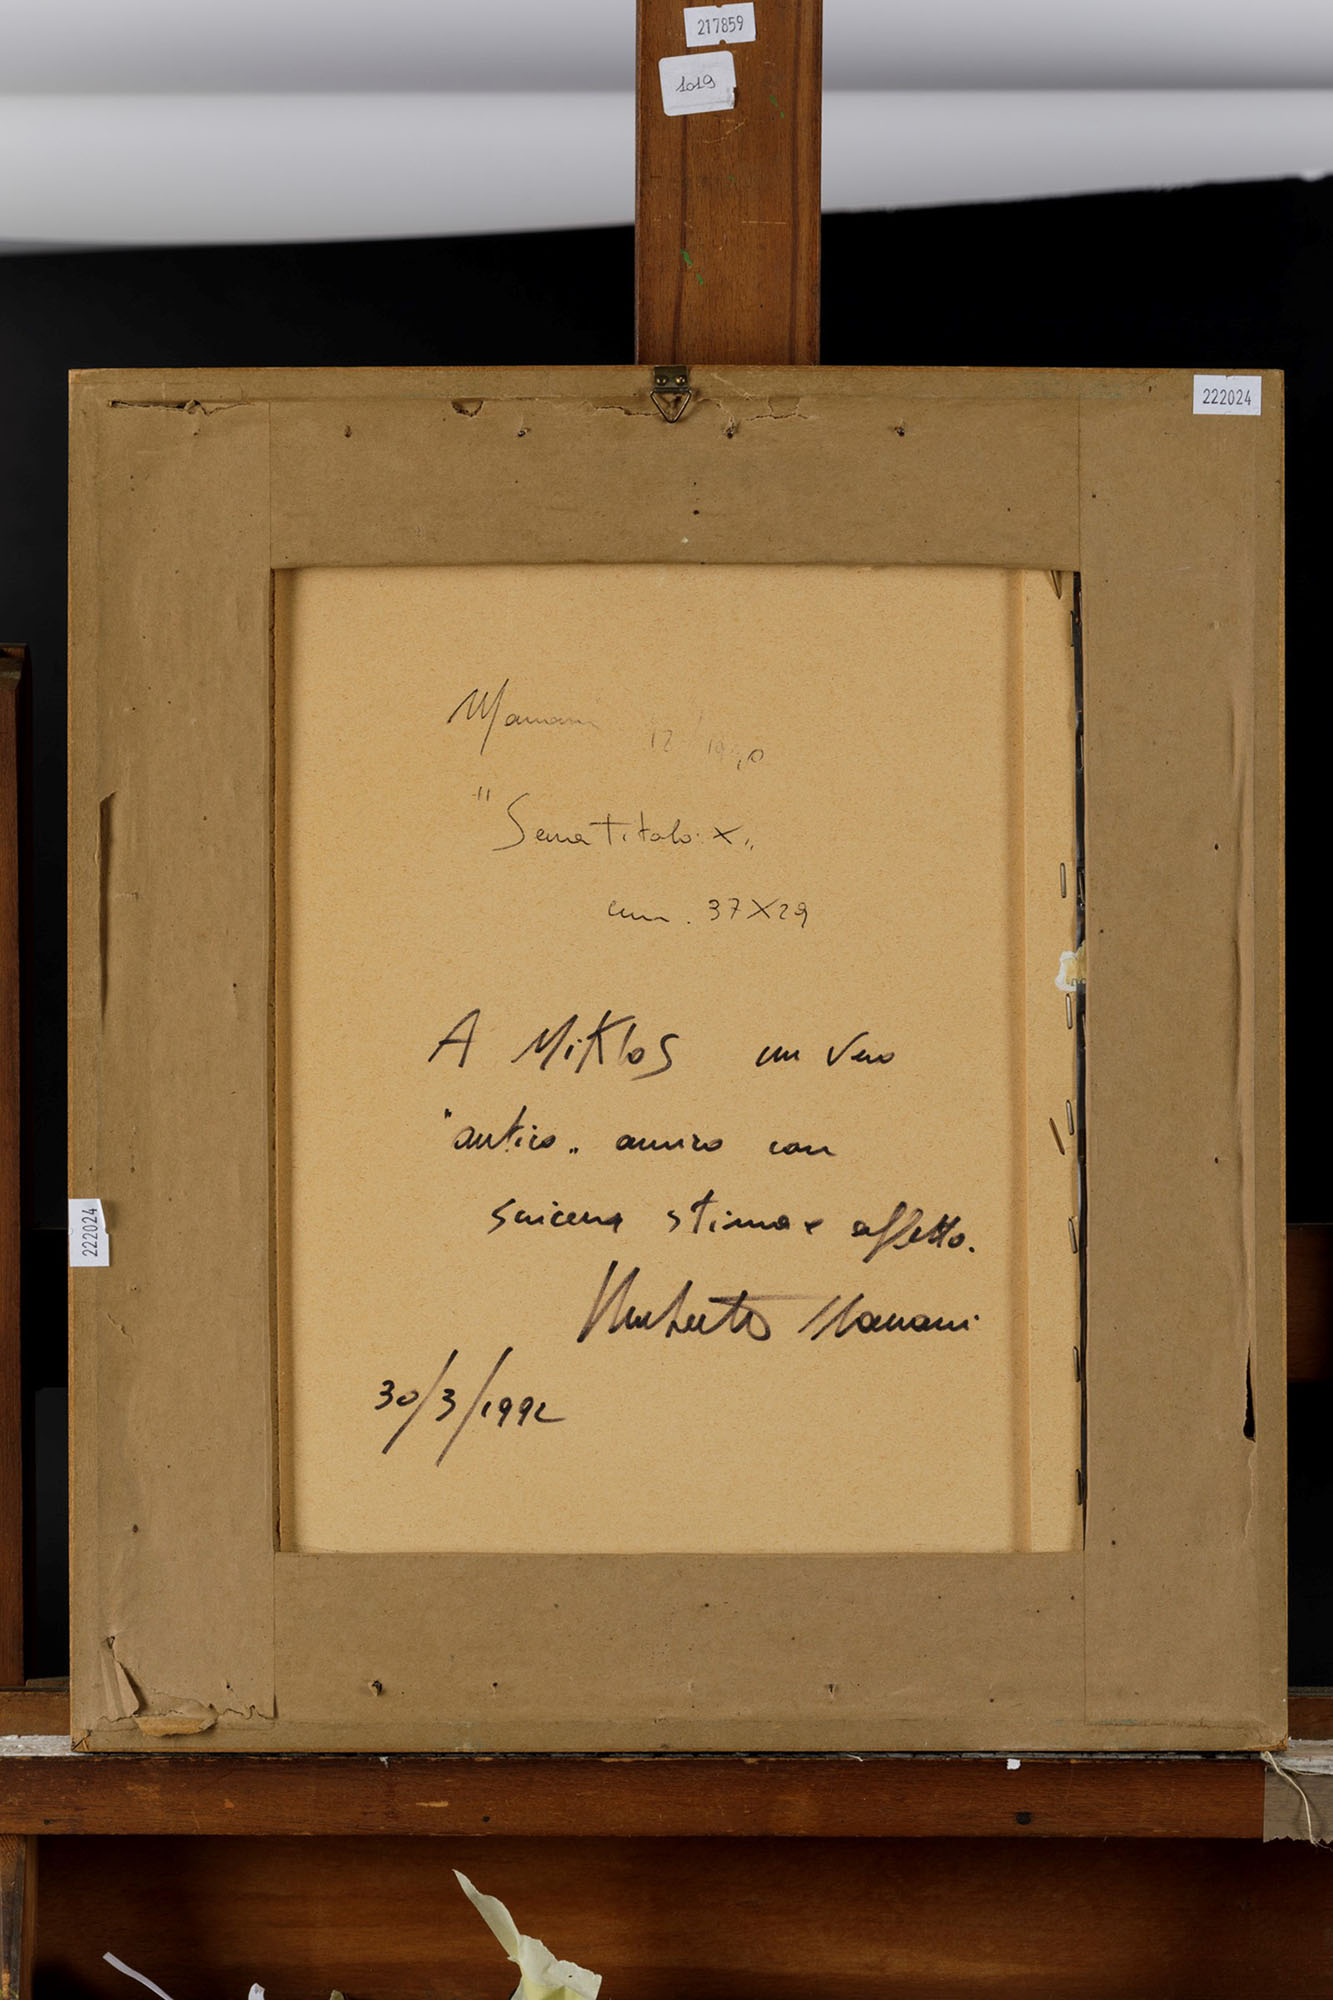 217859
1019
222024
12/19
"Senza Titolo. X"
cm. 37X29
A MiKlos un vero
"antico" amico con
sincera stima e affetto.
Umberto Mariani
30/3/1992
222024